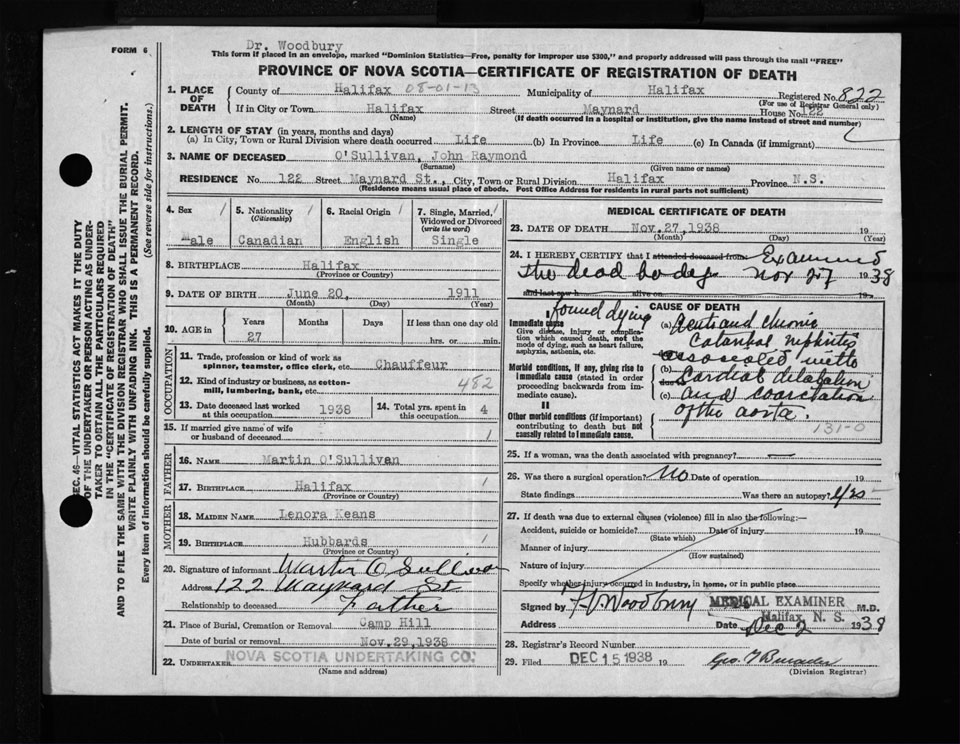 FORM 6
Dr. Woodbury
This form if placed in an envelope, marked "Dominion Statistics—Free, penalty for improper use $300," and properly addressed will pass through the mail "FREE"
PROVINCE OF NOVA SCOTIA—CERTIFICATE OF REGISTRATION OF DEATH
1. PLACE OF DEATH County of Halifax 08-01-13 Municipality of Halifax Registered No. 822
(For use of Registrar General only)
If in City or Town Halifax Street Maynard House No. 122
(Name) (If death occurred in a hospital or institution, give the name instead of street and number)
2. LENGTH OF STAY (in years, months and days)
(a) In City, Town or Rural Division where death occurred Life (b) In Province Life (c) In Canada (if immigrant)
3. NAME OF DECEASED O'Sullivan, John Raymond
(Surname) (Given name or names)
RESIDENCE No. 122 Street Maynard St., City, Town or Rural Division Halifax Province N.S.
(Residence means usual place of abode. Post Office Address for residents in rural parts not sufficient)
4. Sex 5. Nationality (Citizenship) 6. Racial Origin 7. Single, Married, Widowed or Divorced (write the word)
Male Canadian English Single
8. BIRTHPLACE Halifax
(Province or Country)
9. DATE OF BIRTH June 20, 1911
(Month) (Day) (Year)
10. AGE in Years Months Days If less than one day old
27 hrs. or min.
OCCUPATION
11. Trade, profession or kind of work as spinner, teamster, office clerk, etc. Chauffeur
12. Kind of industry or business, as cotton-mill, lumbering, bank, etc. 482
13. Date deceased last worked at this occupation 1938 14. Total yrs. spent in this occupation 4
15. If married give name of wife or husband of deceased
FATHER
16. NAME Martin O'Sullivan
17. BIRTHPLACE Halifax
(Province or Country)
MOTHER
18. MAIDEN NAME Lenora Keans
19. BIRTHPLACE Hubbards
(Province or Country)
20. Signature of informant Martin O'Sullivan
Address 122 Maynard St.
Relationship to deceased Father
21. Place of Burial, Cremation or Removal Camp Hill
Date of burial or removal Nov. 29, 1938
22. UNDERTAKER NOVA SCOTIA UNDERTAKING CO.
(Name and address)
MEDICAL CERTIFICATE OF DEATH
23. DATE OF DEATH Nov. 27, 1938 19
(Month) (Day) (Year)
24. I HEREBY CERTIFY that I attended deceased from Examined
the dead body Nov 27 1938
and last saw h alive on 19
found dying
CAUSE OF DEATH
I
Immediate cause
Give disease, injury or complication which caused death, not the mode of dying, such as heart failure, asphyxia, asthenia, etc.
Morbid conditions, if any, giving rise to immediate cause (stated in order proceeding backwards from immediate cause).
II
Other morbid conditions (if important) contributing to death but not causally related to immediate cause.
(a) Acute and chronic
catarrhal nephritis
associated with
(b) Cardiac dilatation
(c) and coarctation
of the aorta.
131-0
25. If a woman, was the death associated with pregnancy?
26. Was there a surgical operation? No Date of operation 19
State findings Was there an autopsy? Yes
27. If death was due to external causes (violence) fill in also the following:—
Accident, suicide or homicide? Date of injury 19
(State which)
Manner of injury
(How sustained)
Nature of injury
Specify whether injury occurred in industry, in home, or in public place
Signed by Woodbury MEDICAL EXAMINER M.D.
Halifax, N. S.
Address Date Dec 2 1938
28. Registrar's Record Number
29. Filed DEC 15 1938 19
(Division Registrar)
SEC. 46—VITAL STATISTICS ACT MAKES IT THE DUTY
OF THE UNDERTAKER OR PERSON ACTING AS UNDER-
TAKER TO OBTAIN ALL THE PARTICULARS REQUIRED
IN THE "CERTIFICATE OF REGISTRATION OF DEATH"
AND TO FILE THE SAME WITH THE DIVISION REGISTRAR WHO SHALL ISSUE THE BURIAL PERMIT.
WRITE PLAINLY WITH UNFADING INK. THIS IS A PERMANENT RECORD.
Every item of information should be carefully supplied. (See reverse side for instructions.)